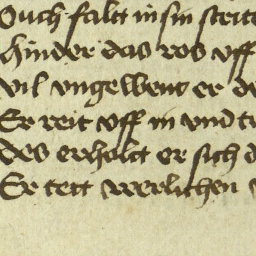 Ouch falt in sin streit
Hinder das ros vff
Vil vngelbent er de
Er reit vff in vnd t
Des erholt er sich d
Er tett werlichen